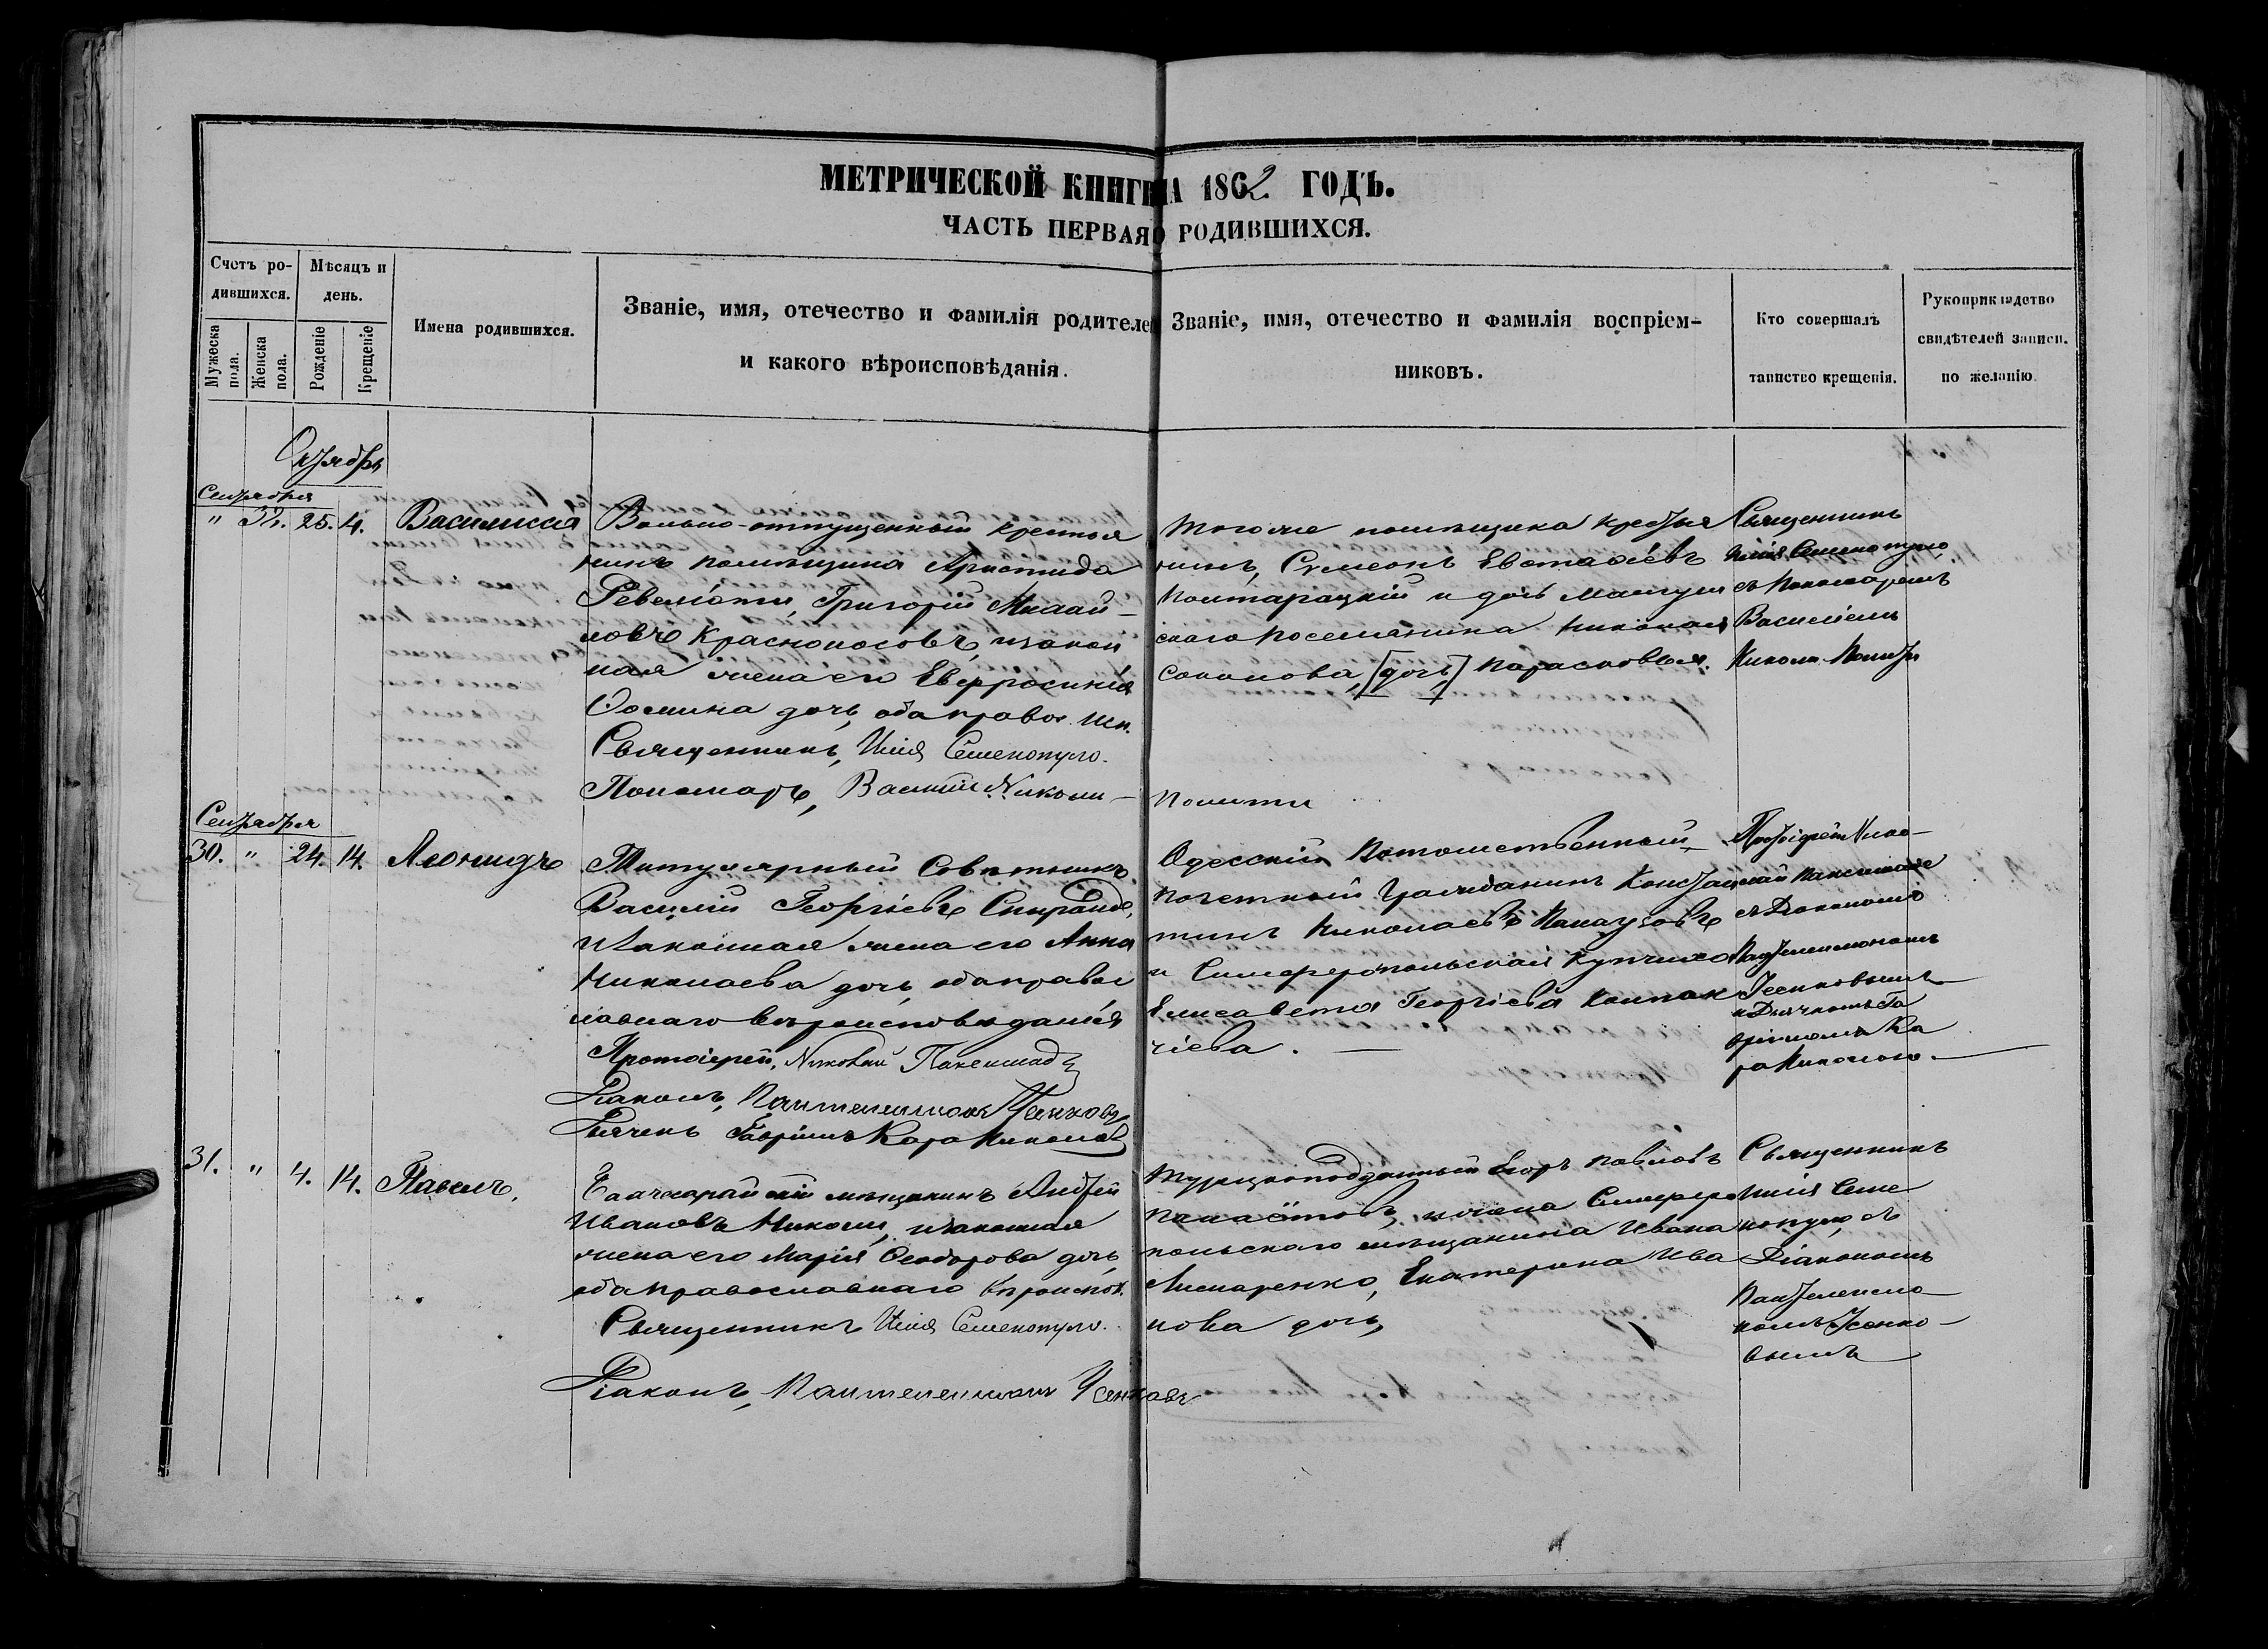 МЕТРИЧЕСКОЙ КНИГИ НА 1862 ГОДЪ.
ЧАСТЬ ПЕРВАЯ О РОДИВШИХСЯ.
Счетъ ро-
дившихся.
Мужеска пола.
Женска пола.
Мѣсяцъ и
день.
Рожденіе
Крещеніе
Имена родившихся.
Званіе, имя, отечество и фамилія родителей
и какого вѣроисповѣданія.
Званіе, имя, отечество и фамилія воспріем-
никовъ.
Кто совершалъ
таинство крещенія.
Рукоприкладство
свидѣтелей записи.
по желанію.
Октябрь
Сентября
" 32. 25. 4.
Василисса
Вольно-отпущенный крестья
нинъ помѣщика Аристида
Ревеліоти, Григорій Михай-
ловъ Краснопосовъ, и закон
ная жена его Евфросинія
Фомина дочь, оба правос. исп.
Священникъ, Илія Семенопуло.
Пономарь, Василій Николи-
Тогоже помѣщика крестья
нинъ, Сѵмеонъ Евстаѳіевъ
и дочь Мангуш
скаго поселянина Николая
Соколова, [дочь] Парасковья.
Полити
Священникъ
Илія Семенопуло
съ Пономаремъ
Василіемъ
Николи-Полити
Сентября
30. " 24. 14.
Леонидъ
Титулярный Совѣтникъ
Василій Георгіевъ Спиранде,
и законная жена его Анна
Николаева дочь, оба правос
лавнаго вѣроисповѣданія
Протоіерей, Николай
Діаконъ, Пантелеимонъ Усенковъ
Дьячекъ Гавріилъ Кара Николовъ
Одесскій Потомственный
Почетный Гражданинъ Констан
тинъ Николаевъ
и Симферопольская Купчиха
Елисавета Георгіева Колпак
чіева.
Протоіерей Нико-
лай
съ Діакономъ
Пантелеимономъ
Усенковымъ
и Дьячкомъ Га
вріиломъ Ка
ра Николовъ.
31. " 4. 14.
Павелъ.
Бахчисарайскій мѣщанинъ Андрей
Ивановъ Николи, и законная
жена его Марія Ѳеодорова дочь,
оба православнаго вѣроиспов.
Священникъ Илія Семенопуло.
Діаконъ, Пантелеимонъ Усенковъ
Турецкоподданный Егоръ Павловъ
и жена Симферо
польскаго мѣщанина Ивана
Лимаренко, Екатерина Ива
нова дочь,
Священникъ
Илія Семе
нопуло, съ
Діакономъ
Пантелеимо-
номъ Усенко-
вымъ